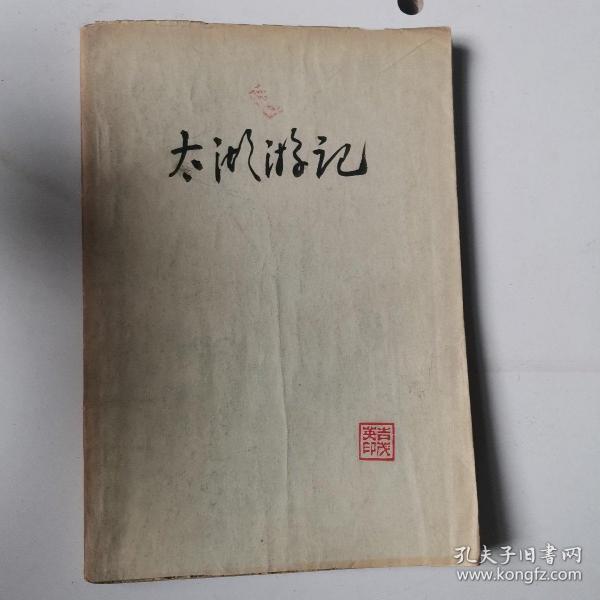 太湖游记
吉茂
英印
孔夫子旧书网
www.kongfz.com